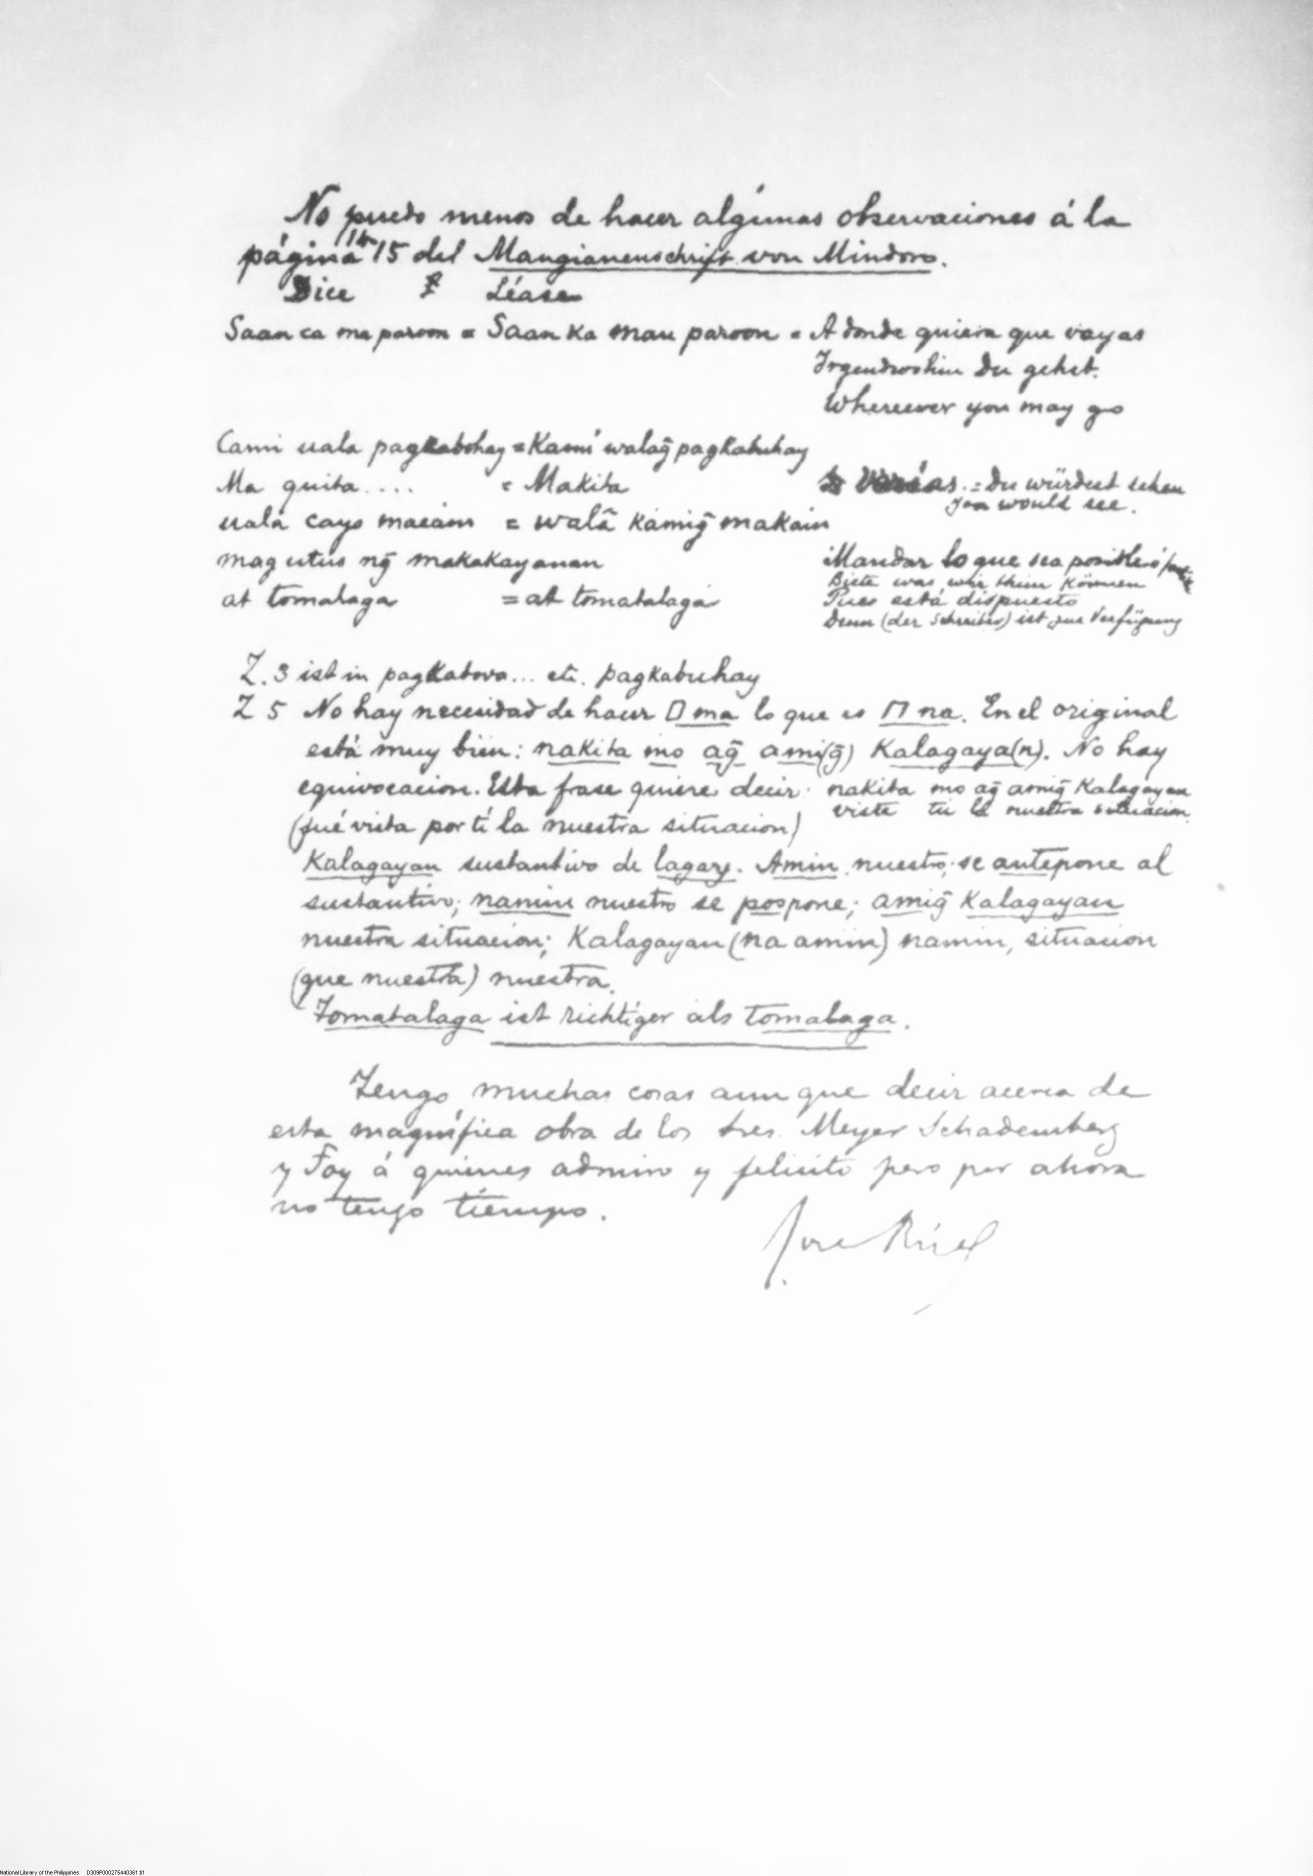 No puedo menos de hacer algunas observaciones á la
página 14 15 del Mangianenschrift von Mindoro.
Dice Léase
Saan ca ma paroon = Saan ka mau paroon = A donde quiera que vayas
Irgendwohin Du gehst.
Wherever you may go
Cami uala pagkabohay = Kamí walag̃ pagkabuhay
Ma quita .... = Makita verías = Du würdest sehen
You would see.
ualá cayo macáin = walâ kamig̃ makáin
mag utus ng̃ makakayanan Mandar lo que sea posible
Biete was wir Ihnen können
at tomalaga = at tomatalaga Pues está dispuesto
Denn (der Schreiber) ist zur Verfügung
Z. 3 ist in pagkabova... etc. pagkabuhay
Z 5 No hay necesidad de hacer ma lo que es na. En el original
está muy bien: nakita mo ag̃ ami(g̃) Kalagaya(n). No hay
equivocacion. Esta frase quiere decir: nakita mo ag̃ amig̃ Kalagayan
viste tú la nuestra situacion
(fué vista por tí la nuestra situacion)
Kalagayan sustantivo de lagay. Amin nuestro; se antepone al
sustantivo; namin nuestro se pospone; amig̃ Kalagayan
nuestra situacion; Kalagayan (na amin) namin, situacion
(que nuestra) nuestra.
Tomatalaga ist richtiger als tomalaga.
Tengo muchas cosas aun que decir acerca de
esta magnífica obra de los tres. Meyer Schadenberg
y Foy á quienes admiro y felicito pero por ahora
no tengo tiempo.
Jose Rizal
National Library of the Philippines D309P000275440361 1/1